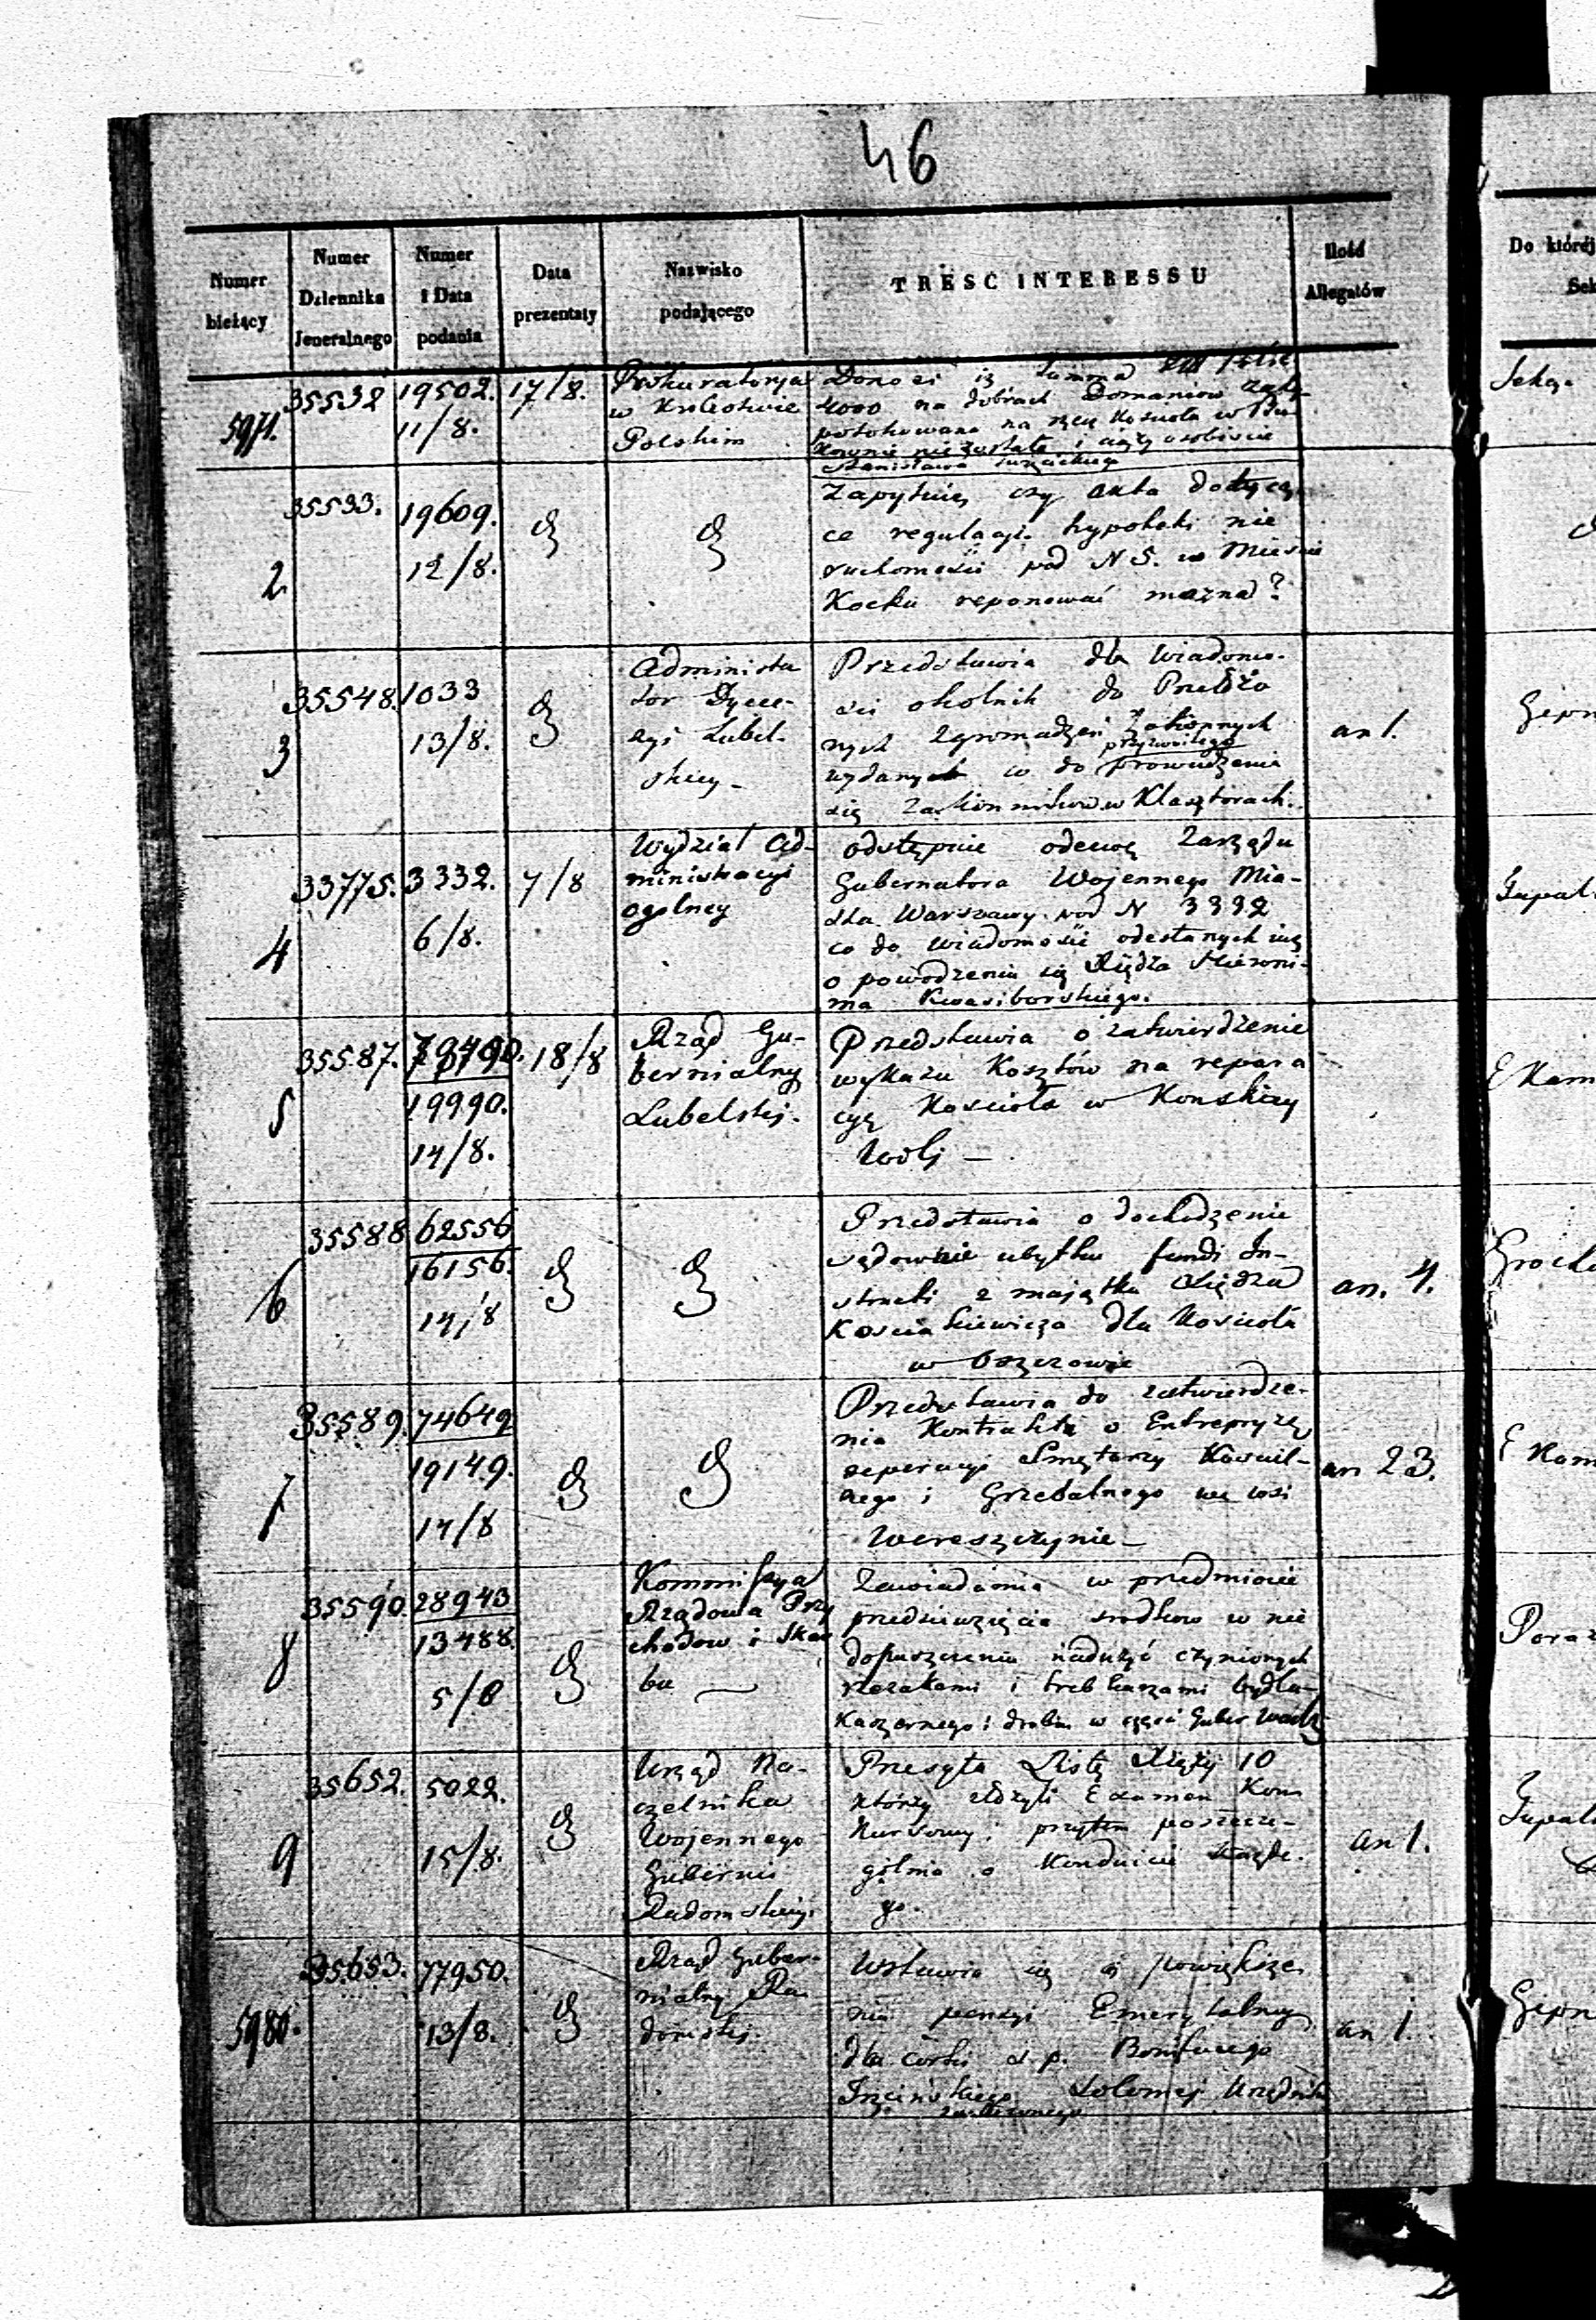 46
Numer bieżący
Numer Dziennika Jeneralnego
Numer i Data podania
Data prezentaty
Nazwisko podającego
TRESC INTERESSU
Ilość Allegatów
Do któréj
Sek
5971.
35532
19502.
11/8.
17/8.
Prokuratorya
w Krolestwie
Polskim
Donosi iż Summa
4000 na dobrach Domaniow
na rzecz Kosciola w
nie została i ciąży osobiscie
Stanisława
Sekc.
2
35533.
19609.
12/8.
Zapytuię czy akta dotyczą
ce regulacyi hypoteki nie
ruchomości pod N 5. w Miescie
Kocku reponować można?
3
35548.
1033
13/8.
Administra
tor Dyece-
zyi Lubel-
skiey -
Przedstawia dla Wiadomo-
ści okolnik do Przełożo
nych Zgromadzeń Zakonnych
przyzwoitego
wydanych co do prowadzenia
się Zakonnikow w Klasztorach.
an 1.
4
33775.
3332.
6/8.
7/8
Wydział Ad-
ministracyi
ogolney
odstępuie odezwę Zarządu
Gubernatora Wojennego Mia-
sta Warszawy pod N 3332
co do wiadomości odesłanych iuż
o powodzeniu się Xiędza Hieroni-
ma Kwasiborskiego.
5
35587.
79490.
19990.
14/8.
18/8
Rząd Gu-
bernialny
Lubelski.
Przedstawia o zatwierdzenie
wykazu Kosztów na repara
cyę Kościoła w Konskiey
Woli -
E Kam
6
35588
62556
16156.
14/8
Przedstawia o dochodzenie
sądownie ubytku fundi In-
structi z majątku Xiędza
Kościałkiewicza dla Kościoła
w
an. 4.
7
35589.
74649
19149.
14/8
Przedstawia do zatwierdze-
nia Kontraktu o Entrepryzę
reperacyi Smętarzy Kosciel-
nego i Grzebalnego we wsi
Wereszczynie -
an 23.
E Kam
8
35590.
28943
13488.
5/8
Kommissya
Rządowa Przy
chodow i Skar
bu -
Zawiadamia w przedmiocie
przedsiewzięcia srodkow w nie
dopuszczeniu nadużyć czynionych
rzezakami i trebkaczami bydła
Kaszernego i drobiu w części Guber
9
35652.
5022.
15/8.
Urząd Na-
czelnika
Wojennego
Gubernii
Radomskiey.
Przesyła Listę Xięży 10
którzy złożyli Examen Kon
kursowy; przytem poszcze-
gólnie o Konduicie każde-
go.
an 1.
5980.
35653.
77950.
13/8.
Rząd Guber-
nialny Ra
domski.
Wstawia się o powiększe-
nie pensyi Emerytalney
dla córki ś p. Bonifacego
Salomei
an 1.